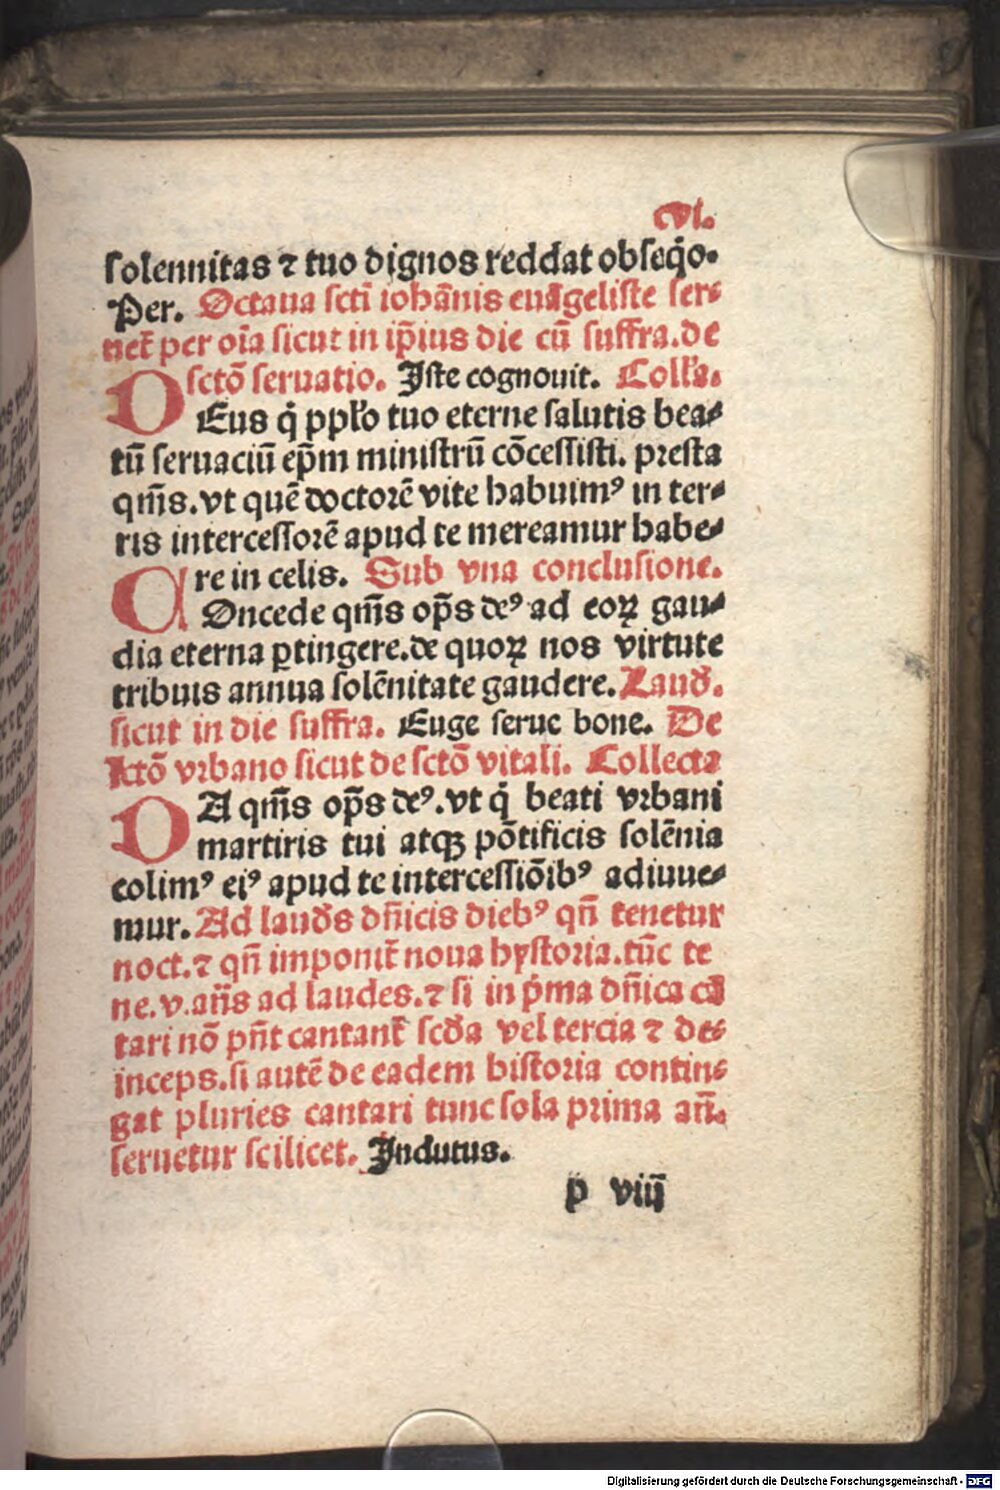 cvi.
solennitas ⁊ tuo dignos reddat obseq̄o.
Per. Octaua sctī iohānis euāgeliste ser⸗
uet᷑ per oīa sicut in ip̄ius die cū suffra. de
sctō seruatio. Iste cognouit. Coll'a.
DEus q̇ pp̄l'o tuo eterne salutis bea⸗
tū seruaciū ep̄m ministrū cōcessisti. presta
qm̄s. vt quē doctorē vite habuimꝰ in ter⸗
ris intercessorē apud te mereamur habe⸗
re in celis. Sub vna conclusione.
COncede qm̄s op̄s deꝰ ad eoꝝ gau⸗
dia eterna ꝑtingere. de quoꝝ nos virtute
tribuis annua solēnitate gaudere. Laud̄.
sicut in die suffra. Euge serue bone. De
sctō vrbano sicut de sctō vitali. Collecta
DA qm̄s op̄s deꝰ. vt q̇ beati vrbani
martiris tui atqꝫ pōtificis solēnia
colimꝰ eiꝰ apud te intercessiōibꝰ adiuue⸗
mur. Ad laud̄s dn̄icis diebꝰ qn̄ tenetur
noct. ⁊ qn̄ imponit᷑ noua hystoria. tūc te
ne. v. an̄s ad laudes. ⁊ si in p̄ma dn̄ica cā
tari nō pn̄t cantant᷑ scd̄a vel tercia ⁊ de⸗
inceps. si autē de eadem historia contin⸗
gat pluries cantari tunc sola prima an̄.
seruetur scilicet. Indutus.
p viij
Digitalisierung gefördert durch die Deutsche Forschungsgemeinschaft - DFG